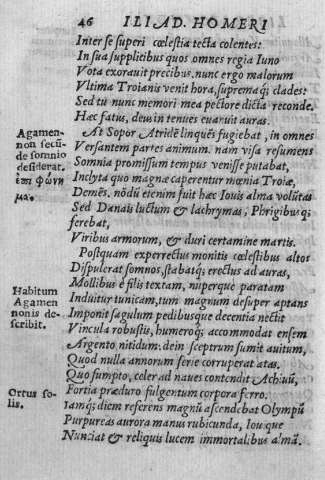 46 ILIAD. HOMERI
Inter se superi cœlestia tecta colentes:
In sua supplicibus quos omnes regia Iuno
Vota exorauit precibus. nunc ergo malorum
Vltima Troianis venit hora, supremaq; clades:
Sed tu nunc memori mea pectore dicta reconde.
Hæc fatus, demum in tenues euanuit auras.
Agamen-
non secū-
de somnio
desiderat.
ἐπιφώνη
μα.
At Sopor Atridē linquēs fugiebat, in omnes
Versantem partes animum. nam visa resumens
Somnia promissum tempus venisse putabat,
Inclyta quo magnæ caperentur mœnia Troiæ,
Demēs. nōdū etenim fuit hæc Iouis alma volūtas
Sed Danais luctum & lachrymas, Phrigibusq;
ferebat,
Viribus armorum, & duri certamine martis.
Postquam experrectus monitis cœlestibus altos
Dispulerat somnos, stabatq; erectus ad auras,
Habitum
Agamen
nonis de-
scribit.
Mollibus è filis textam, nuperque paratam
Induitur tunicam, tum magnum desuper aptans
Imponit sagulum pedibusque decentia nectit
Vincula robustis, humeroq; accommodat ensem
Argento nitidum. dein sceptrum sumit auitum,
Quod nulla annorum serie corruperat ætas.
Quo sumpto, celer ad naues contendit Achiuū,
Ortus so-
lis.
Fortia præduro fulgentum corpora ferro.
Iamq; diem referens magnū ascendebat Olympū
Purpureas aurora manus rubicunda, Iouique
Nunciat & reliquis lucem immortalibus almā.